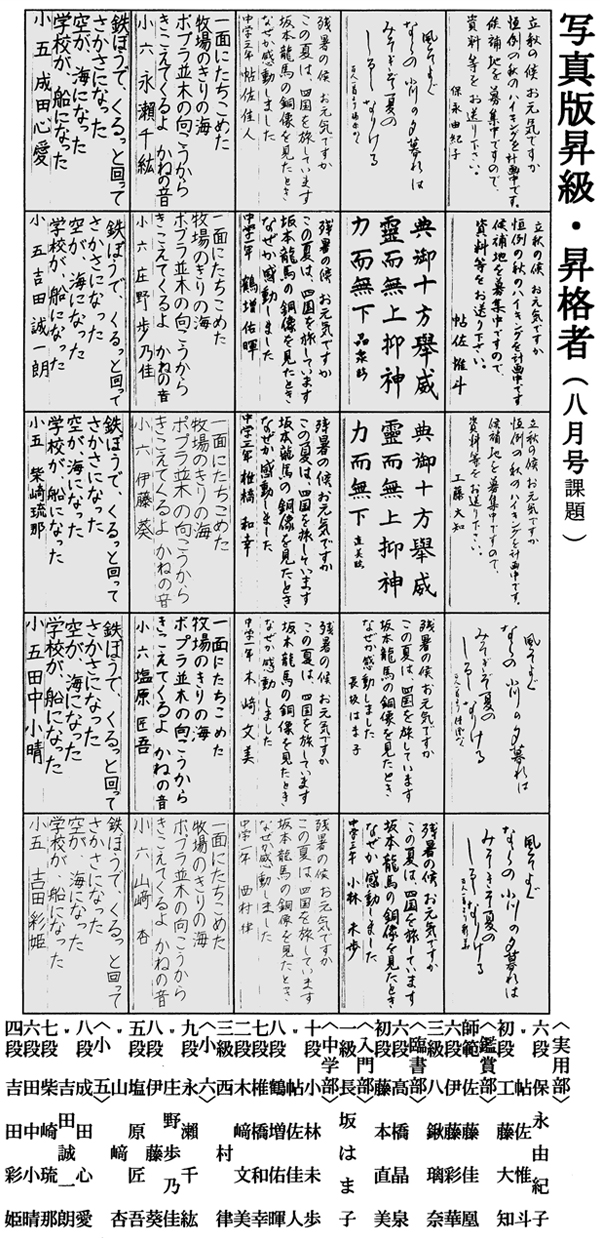 写真版昇級・昇格者（八月号課題）
立秋の候 お元気ですか
恒例の秋のハイキングを計画中です。
候補地を募集中ですので、
資料等をお送り下さい。
保永由紀子
立秋の候 お元気ですか
恒例の秋のハイキングを計画中です
候補地を募集中ですので、
資料等をお送り下さい。
帖佐惟斗
立秋の候 お元気ですか
恒例の秋のハイキングを計画中です。
候補地を募集中ですので、
資料等をお送り下さい。
工藤大知
風そよぐ
ならの小川の夕暮れは
みそぎぞ夏の
しるしなりける
風そよぐ
ならの小川の夕暮れは
みそぎぞ夏の
しるしなりける
風そよぐ
ならの小川の夕暮れは
みそぎぞ夏の
しるしなりける
典御十方舉威
靈而無上抑神
力而無下 晶泉臨
典御十方舉威
靈而無上抑神
力而無下 直美臨
残暑の候 お元気ですか
この夏は、四国を旅しています
坂本龍馬の銅像を見たとき
なぜか感動しました
長坂はま子
残暑の候 お元気ですか
この夏は、四国を旅しています
坂本龍馬の銅像を見たとき
なぜか感動しました
中学三年 小林未歩
残暑の候 お元気ですか
この夏は、四国を旅しています
坂本龍馬の銅像を見たとき
なぜか感動しました
中学三年 帖佐佳人
残暑の候 お元気ですか
この夏は、四国を旅しています
坂本龍馬の銅像を見たとき
なぜか感動しました
中学二年 鶴増佑暉
残暑の候 お元気ですか
この夏は、四国を旅しています
坂本龍馬の銅像を見たとき
なぜか感動しました
中学三年 椎橋和幸
残暑の候 お元気ですか
この夏は、四国を旅しています
坂本龍馬の銅像を見たとき
なぜか感動しました
中学二年 木崎文美
残暑の候 お元気ですか
この夏は、四国を旅しています
坂本龍馬の銅像を見たとき
なぜか感動しました
中学一年 西村律
一面にたちこめた
牧場のきりの海
ポプラ並木の向こうから
きこえてくるよ かねの音
小六 永瀬千紘
一面にたちこめた
牧場のきりの海
ポプラ並木の向こうから
きこえてくるよ かねの音
小六 庄野歩乃佳
一面にたちこめた
牧場のきりの海
ポプラ並木の向こうから
きこえてくるよ かねの音
小六 伊藤葵
一面にたちこめた
牧場のきりの海
ポプラ並木の向こうから
きこえてくるよ かねの音
小六 塩原匠吾
一面にたちこめた
牧場のきりの海
ポプラ並木の向こうから
きこえてくるよ かねの音
小六 山﨑杏
鉄ぼうで、くるっと回って
さかさになった
空が、海になった
学校が、船になった
小五 成田心愛
鉄ぼうで、くるっと回って
さかさになった
空が、海になった
学校が、船になった
小五 吉田誠一朗
鉄ぼうで、くるっと回って
さかさになった
空が、海になった
学校が、船になった
小五 柴崎琉那
鉄ぼうで、くるっと回って
さかさになった
空が、海になった
学校が、船になった
小五 田中小晴
鉄ぼうで、くるっと回って
さかさになった
空が、海になった
学校が、船になった
小五 吉田彩姫
〈実用部〉
六段 保永由紀子
〃 帖佐惟斗
初段 工藤大知
〈鑑賞部〉
師範 佐藤佳凰
六段 伊藤彩華
三級 八鍬璃奈
〈臨書部〉
六段 髙橋晶泉
初段 藤本直美
〈入門部〉
一級 長坂はま子
〈中学部〉
十段 小林未歩
〃 帖佐佳人
八段 鶴増佑暉
七段 椎橋和幸
二段 木﨑文美
三級 西村律
〈小六〉
九段 永瀬千紘
〃 庄野歩乃佳
八段 伊藤葵
五段 塩原匠吾
〃 山﨑杏
〈小五〉
八段 成田心愛
〃 吉田誠一朗
七段 柴崎琉那
六段 田中小晴
四段 吉田彩姫